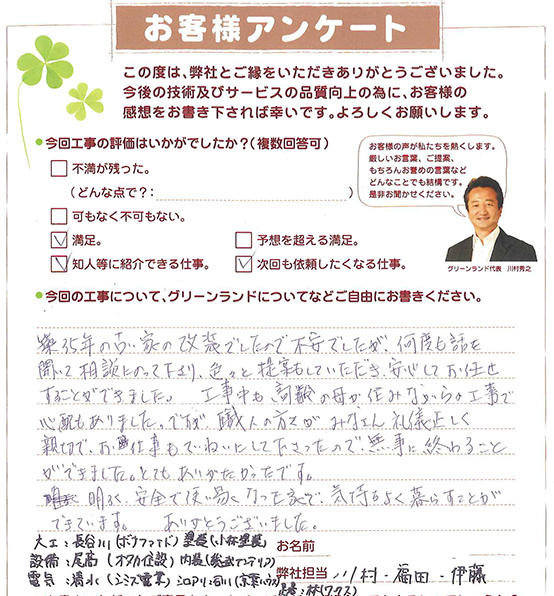 お客様アンケート
この度は、弊社とご縁をいただきありがとうございました。
今後の技術及びサービスの品質向上の為に、お客様の
感想をお書き下されば幸いです。よろしくお願いします。
●今回工事の評価はいかがでしたか？（複数回答可）
不満が残った。
（どんな点で？：　）
可もなく不可もない。
満足。
予想を超える満足。
知人等に紹介できる仕事。
次回も依頼したくなる仕事。
お客様の声が私たちを熱くします。
厳しいお言葉、ご提案、
もちろんお誉めの言葉など
どんなことでも結構です。
是非お聞かせください。
グリーンランド代表　川村秀之
●今回の工事について、グリーンランドについてなどご自由にお書きください。
築35年の古い家の改装でしたので不安でしたが、何度も話を
聞いて相談にのって下さり、色々と提案もしていただき、安心してお任せ
することができました。　工事中も、高齢の母が住みながらの工事で
心配もありました。ですが、職人の方々が　みなさん　礼儀正しく
親切で、お仕事もていねいにして下さったので、無事に終わること
ができました。とてもありがたかったです。
明るく、安全で使い易くなった家で、気持ちよく暮らすことが
できています。　ありがとうございました。
大工：長谷川
設備：尾高
内装
電気：清水（シミズ電業）
お名前
弊社担当　川村・福田・伊藤